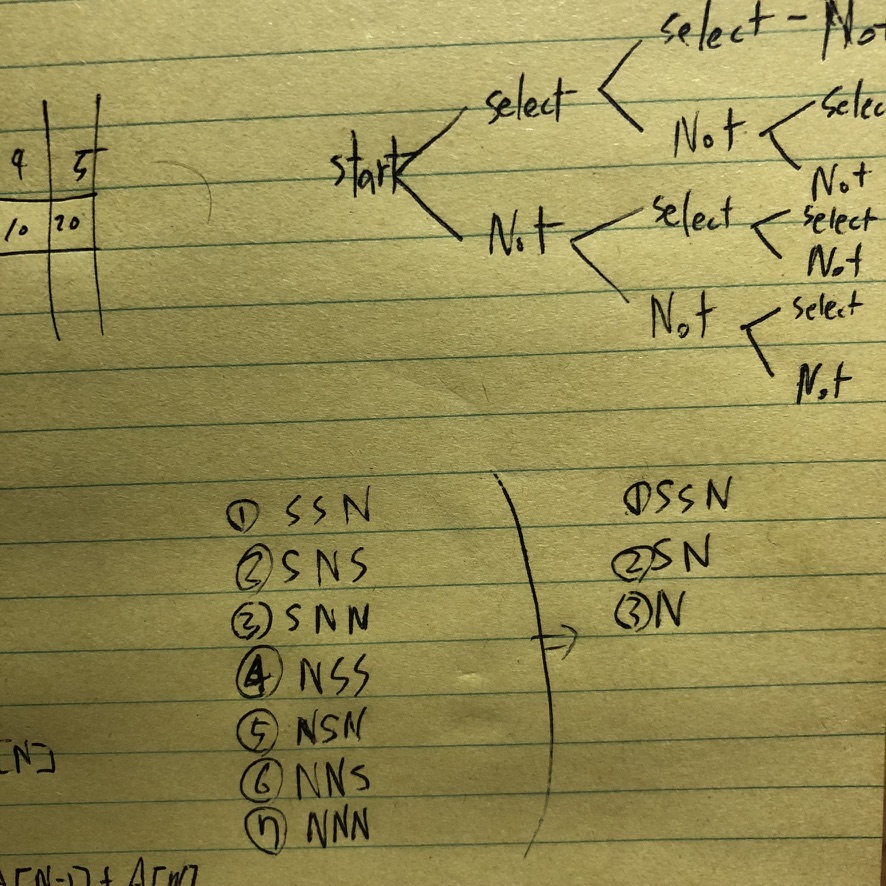 4 5
10 20
select - Not
select
Not
selec
Not
start
Not
select
select
Not
Not
select
Not
① SSN
② SNS
③ SNN
④ NSS
⑤ NSN
⑥ NNS
⑦ NNN
① SSN
② SN
③ N
[N]
A[N-1] + A[N]